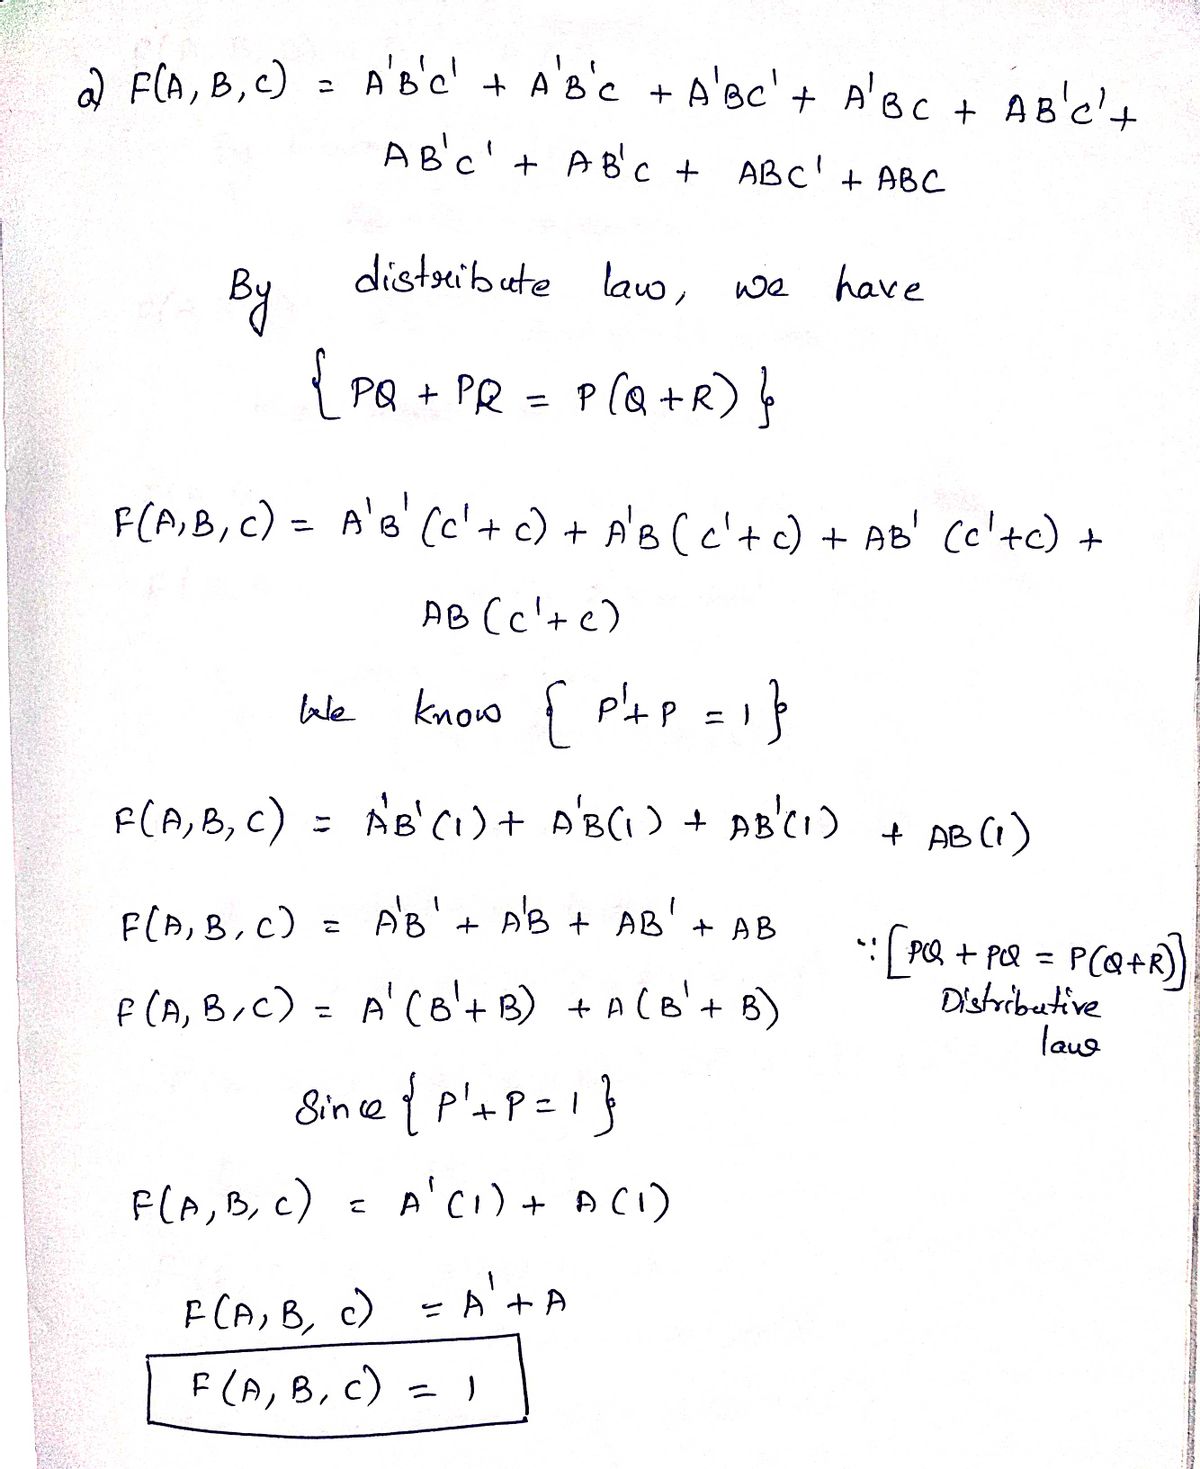 a) F(A, B, C) = A'B'C' + A'B'C + A'BC' + A'BC + AB'C' +
AB'C' + AB'C + ABC' + ABC
By distribute law, we have
{ PQ + PR = P(Q+R) }
F(A,B,C) = A'B'(C'+C) + A'B(C'+C) + AB'(C'+C) +
AB(C'+C)
We know { P'+P = 1 }
F(A,B,C) = A'B'(1) + A'B(1) + AB'(1) + AB(1)
F(A,B,C) = A'B' + A'B + AB' + AB
∵ [PQ + PQ = P(Q+R)]
F(A,B,C) = A'(B'+B) + A(B'+B)
Distributive
law
Since { P'+P = 1 }
F(A,B,C) = A'(1) + A(1)
F(A,B,C) = A'+A
F(A,B,C) = 1